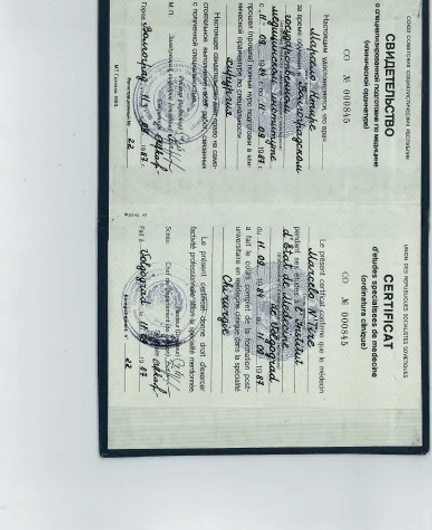 СОЮЗ СОВЕТСКИХ СОЦИАЛИСТИЧЕСКИХ РЕСПУБЛИК
СВИДЕТЕЛЬСТВО
о специализированной подготовке по медицине
(клинической ординатуре)
СО № 000845
Настоящим удостоверяется, что врач
Марсело Нтире
за время обучения в Волгоградском
государственном
медицинском институте
с „11“ 09 1984 г. по „11“ 09 1987 г.
прошел (прошла) полный курс подготовки в кли-
нической ординатуре по специальности
хирургия
Настоящее свидетельство дает право на само-
стоятельное выполнение работ, связанных
с полученной специальностью.
М.П.
Город Волгоград, 11 09 1987 г.
Регистрационный № 22
UNION DES REPUBLIQUES SOCIALISTES SOVIETIQUES
CERTIFICAT
d'etudes specialisees de medecine
(ordinatura clinique)
CO № 000845
Le présent certificat confirme que le médecin
Marcelo N'Tire
pendant ses études à l'Institut
d'Etat de Medecine
de Volgograd
du 11 09 1984 au 11 09 1987
a fait le cours complet de la formation post-
universitaire en médecine clinique dans la spécialité
Chirurgie
Le présent certificat donne droit d'exercer
l'activité professionnelle selon la spécialité mentionnée.
Sceau
Fait à Volgograd, le 11 09 1987
Enregistrement n° 22